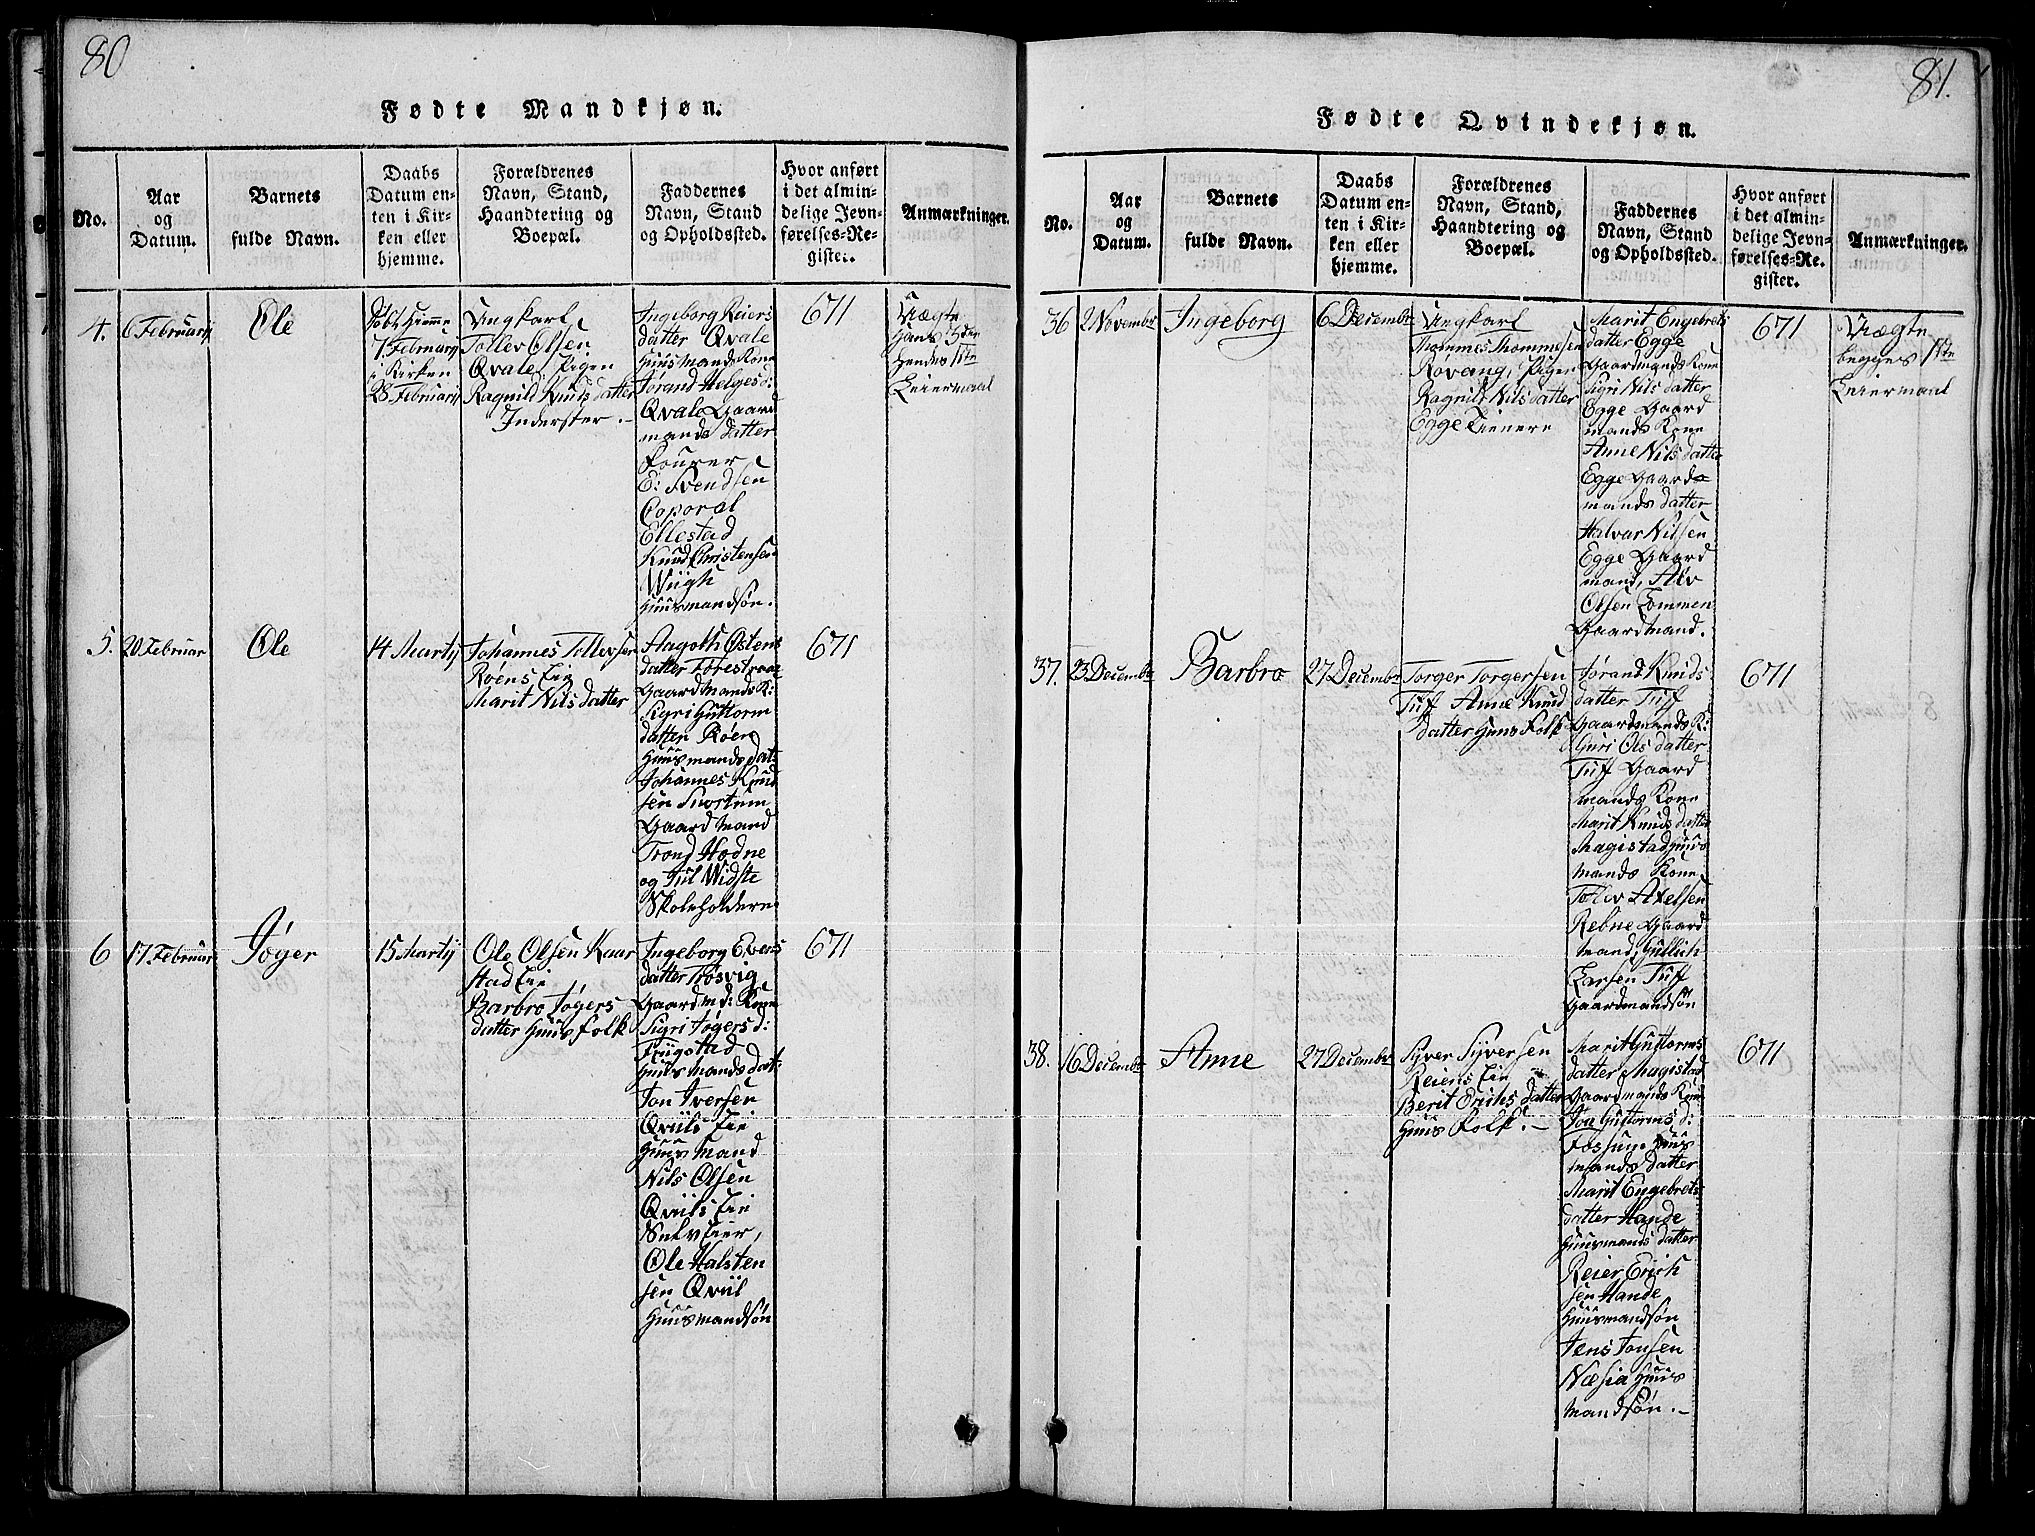 80
Fødte Mandkjøn.
No.
Aar
og
Datum.
Barnets
fulde Navn.
Daabs
Datum en-
ten i Kir-
ken eller
hjemme.
Forældrenes
Navn, Stand,
Haandtering og
Boepæl.
Faddernes
Navn, Stand
og Opholdsted.
Hvor anført
i det almin-
delige Jevn-
førelses-Re-
gister.
Anmærkninger.
4.
6 Februarij
Ole
Døbt hiemme
7 Februarij
i Kirken
28 Februarij
Ungkarl
Tollev Olsen
Qvale, Pigen
Ragnild Knuds datter
Inderster.
Ingeborg Reiers
datter Qvale
Huusmands Kone
Jorand Helgesd:
Qvale Gaard
mands datter
Fourer
E: Svendsen
Coporal
Ellestad
Knud Christensen
Wiigh
Huusmandsøn.
671
Uægte
Hans 3die
Hendes 1ste
Leiermaal
5.
20 Februar
Ole
14 Martij
Johannes Tollevsen
Roens Eie
Marit Nils datter
Aagoth Østens
datter
Gaardmands K:
Sigri Guttorm
datter Roen
Huusmands dat:
Johannes Knud
sen
Gaardmand
Trond Hodne
og Jul Widste
Skoleholdere
671
6
17 Februar
Jøger
15 Martij
Ole Olsen Kaar
stad Eie
Barbro Jøgers
datter Huusfolk
Ingeborg Evens
datter Trøsvig
Gaardmd: Kone
Sigri Jøgers d:
Huusmands dat:
Jon Iversen
Qviils Eie
Huusmand
Nils Olsen
Qviils Eie
Selveier,
Ole Halsten
sen Qviil
Huusmandsøn
671
81.
Fødte Qvindekjøn.
No.
Aar
og
Datum.
Barnets
fulde Navn.
Daabs
Datum en-
ten i Kir-
ken eller
hjemme.
Forældrenes
Navn, Stand,
Haandtering og
Boepæl.
Faddernes
Navn, Stand
og Opholdssted.
Hvor anført
i det almin-
delige Jevn-
førelses-Re-
gister.
Anmærkninger.
36
2 November
Ingeborg
6 December
Ungkarl
Thommes Thommesen
Rovang, Pigen
Ragnild Nils datter
Egge Tienere
Marit Engebrets
datter Egge
Gaardmands Kone
Sigri Nils datter
Egge Gaard
mands Kone
Anne Nils datter
Egge Gaard
mands datter
Halvar Nilsen
Egge Gaard
mand, Alv
Olsen Lommen
Gaardmand.
671
Uægte
begges 1ste
Leiermaal
37.
23 December
Barbro
27 December
Torger Torgersen
Tuff Anne Knud
datter Huusfolk
Jørand Knuds
datter Tuff
Gaardmands K:
Guri Ols datter
Tuff Gaard
mands Kone
Marit Knuds datter
Magistad Huus
mands Kone
Tolev Axelsen
Rebne Gaard
mand, Gullich
Larsen Tuff
Gaardmandsøn
671
38.
16 December
Anne
27 December
Syver Syversen
Reiens Eie
Berit Erichs datter
Huus Folk.
Marit Guttorms
datter Magistad
Gaardmands Kone
Joe Guttorms d:
Fossum Huus
mands datter
Marit Engebrets
datter Hande
Huusmands datter
Reier Erich
sen Hande
Huusmandsøn
Jens Jonsen
Næsia Huus
mandsøn.
671